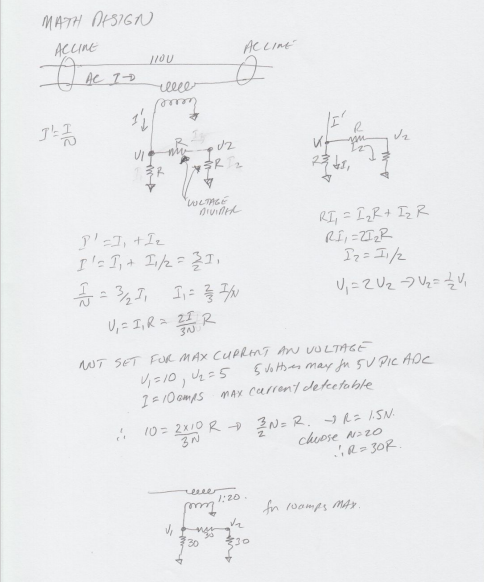 MATH DESIGN
AC LINE
110V
AC LINE
AC I →
I' = I/N
I' ↓
V1
R
V2
R
R
I2
VOLTAGE
DIVIDER
I'
V1
R
I2
V2
R
I1
I' = I1 + I2
I' = I1 + I1/2 = 3/2 I1
I/N = 3/2 I1    I1 = 2/3 I/N
V1 = I1R = 2I/3N R
RI1 = I2R + I2R
RI1 = 2I2R
I2 = I1/2
V1 = 2V2 → V2 = 1/2 V1
NOT SET FOR MAX CURRENT AN VOLTAGE
V1 = 10, V2 = 5    5 Volts max for 5V PIC ADC
I = 10 amps max current detectable
∴ 10 = 2x10/3N R → 3/2 N = R. → R = 1.5N.
choose N = 20
∴ R = 30R.
1:20.
for 10 amps MAX.
V1
30
V2
30
30